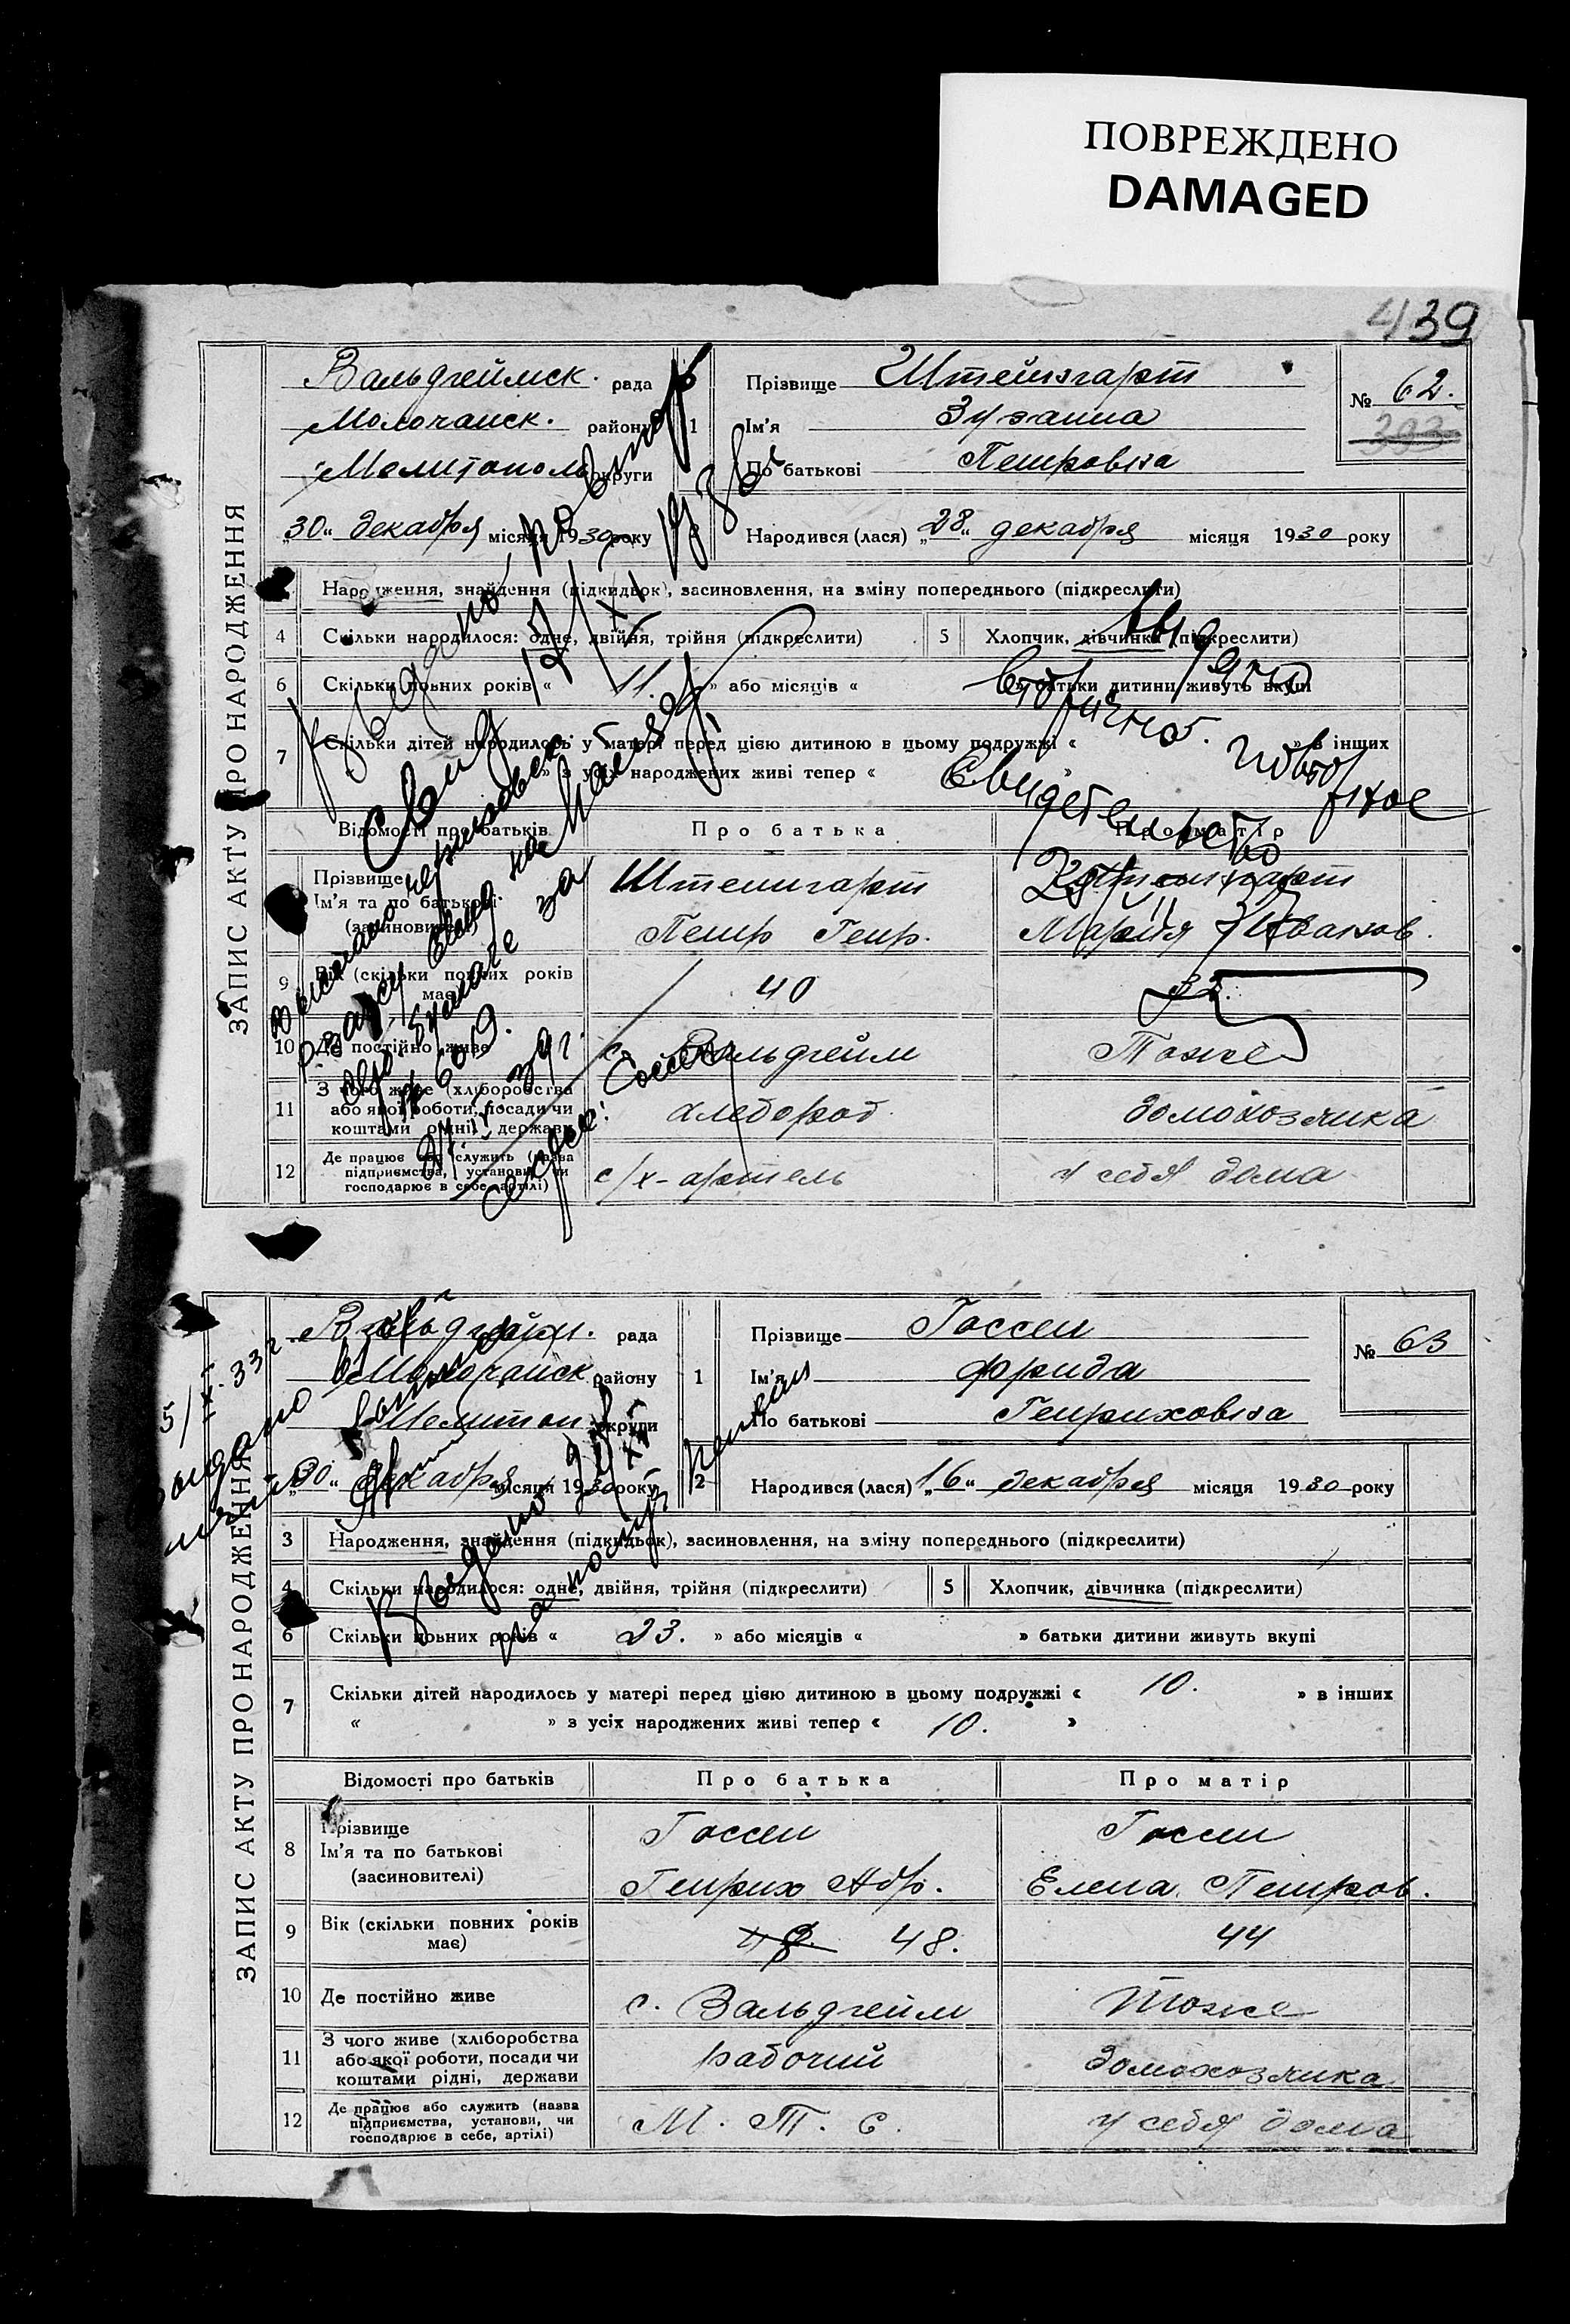 ПОВРЕЖДЕНО
DAMAGED
439
ЗАПИС АКТУ ПРО НАРОДЖЕННЯ
Вальдгеймск. рада
Молочанск. району
Мелитополь округи
„30“ декабря місяця 1930 року
1 Прізвище Штейнгарт
Ім'я Зузанна
По батькові Петровна
№ 62.
393
2 Народився (лася) „28“ декабря місяця 1930 року
Народження, знайдення (підкидьок), засиновлення, на зміну попереднього (підкреслити)
4 Скільки народилося: одне, двійня, трійня (підкреслити)
5 Хлопчик, дівчинка (підкреслити)
6 Скільки повних років « 11. » або місяців « » батьки дитини живуть вкупі
7 Скільки дітей народилось у матері перед цією дитиною в цьому подружжі « » в інших
» з усіх народжених живі тепер «
Выдано повторно
Свид. 12/XI 1938 г.
вторично.
Свидетельство
повторное
Відомості про батьків Про батька Про матір
Прізвище
Ім'я та по батькові
(засиновителі)
Штейнгарт
Петр Генр.
Штейнгарт
Мария Иванов.
9 Вік (скільки повних років має)
40
32.
10 Де постійно живе
с. Вальдгейм
Тоже
11 З чого живе (хліборобства
або якої роботи, посади чи
коштами рідні, держави
хлебороб
домохозяйка
12 Де працює або служить (назва
підприємства, установи, чи
господарює в себе, артілі)
с/х-артель
у себя дома
ЗАПИС АКТУ ПРО НАРОДЖЕННЯ
Вальдгейм. рада
Молочанск району
Мелитоп. округи
„30“ декабря місяця 1930 року
1 Прізвище Госсен
Ім'я Фрида
По батькові Генриховна
№ 63
2 Народився (лася) „16“ декабря місяця 1930 року
3 Народження, знайдення (підкидьок), засиновлення, на зміну попереднього (підкреслити)
4 Скільки народилося: одне, двійня, трійня (підкреслити)
5 Хлопчик, дівчинка (підкреслити)
6 Скільки повних років « 23. » або місяців « » батьки дитини живуть вкупі
7 Скільки дітей народилось у матері перед цією дитиною в цьому подружжі « 10. » в інших
« » з усіх народжених живі тепер « 10. »
Выдано
Відомості про батьків Про батька Про матір
8 Прізвище
Ім'я та по батькові
(засиновителі)
Госсен
Генрих Абр.
Госсен
Елена Петров.
9 Вік (скільки повних років має)
48.
44
10 Де постійно живе
с. Вальдгейм
Тоже
11 З чого живе (хліборобства
або якої роботи, посади чи
коштами рідні, держави
рабочий
домохозяйка
12 Де працює або служить (назва
підприємства, установи, чи
господарює в себе, артілі)
М. Т. С.
у себя дома